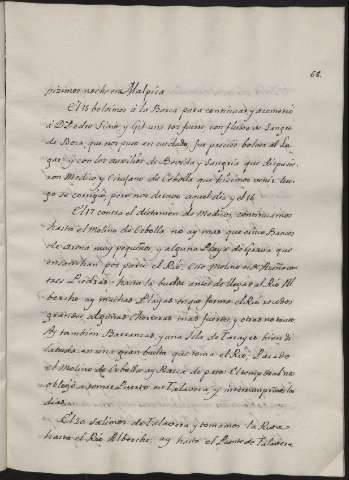 68.
zizimos noche en Malpica
El 15 bolvimos á la Barca para continuar, y acometió
á Dn. Pedro Simo, y Gil una tos fuerte, con fluxo de Sangre
de Boca, que nos puso en cuidado, fue preciso bolver al Lu-
gar, y con los auxilios de Botica, y Sangria que dispuso
con Medico y Cirujano de Cebolla que hizimos venir lue-
go se corrigió, pero nos detuvo aquel dia y el 16
El 17 contra el dictamen de Medicos, continuamos
hasta el Molino de Cebolla no ay mas que cinco Bancos
de Arena muy pequeños, y alguna Playa de Grava que
ensanchan por parte el Rio. Este Molino esta
tres Piedras. hasta la buelta antes de llegar al Rio Al-
berche ay muchas Playas en que forma el Rio bueltas
grandes algunas Chorreras mas fuertes, y otras no tanto
Ay tambien Barrancas, y una Isla de Tarayes bien di-
latada en una gran buelta que toma el Rio. Pasado
el Molino de Cebolla ay Barca de paso. El temporal nos
obligó a tomar Puerto en Talavera y
dias.
El 20 salimos de Talavera y tomamos la Ruta
hasta el Rio Alberche, ay hasta el Puente de Talavera